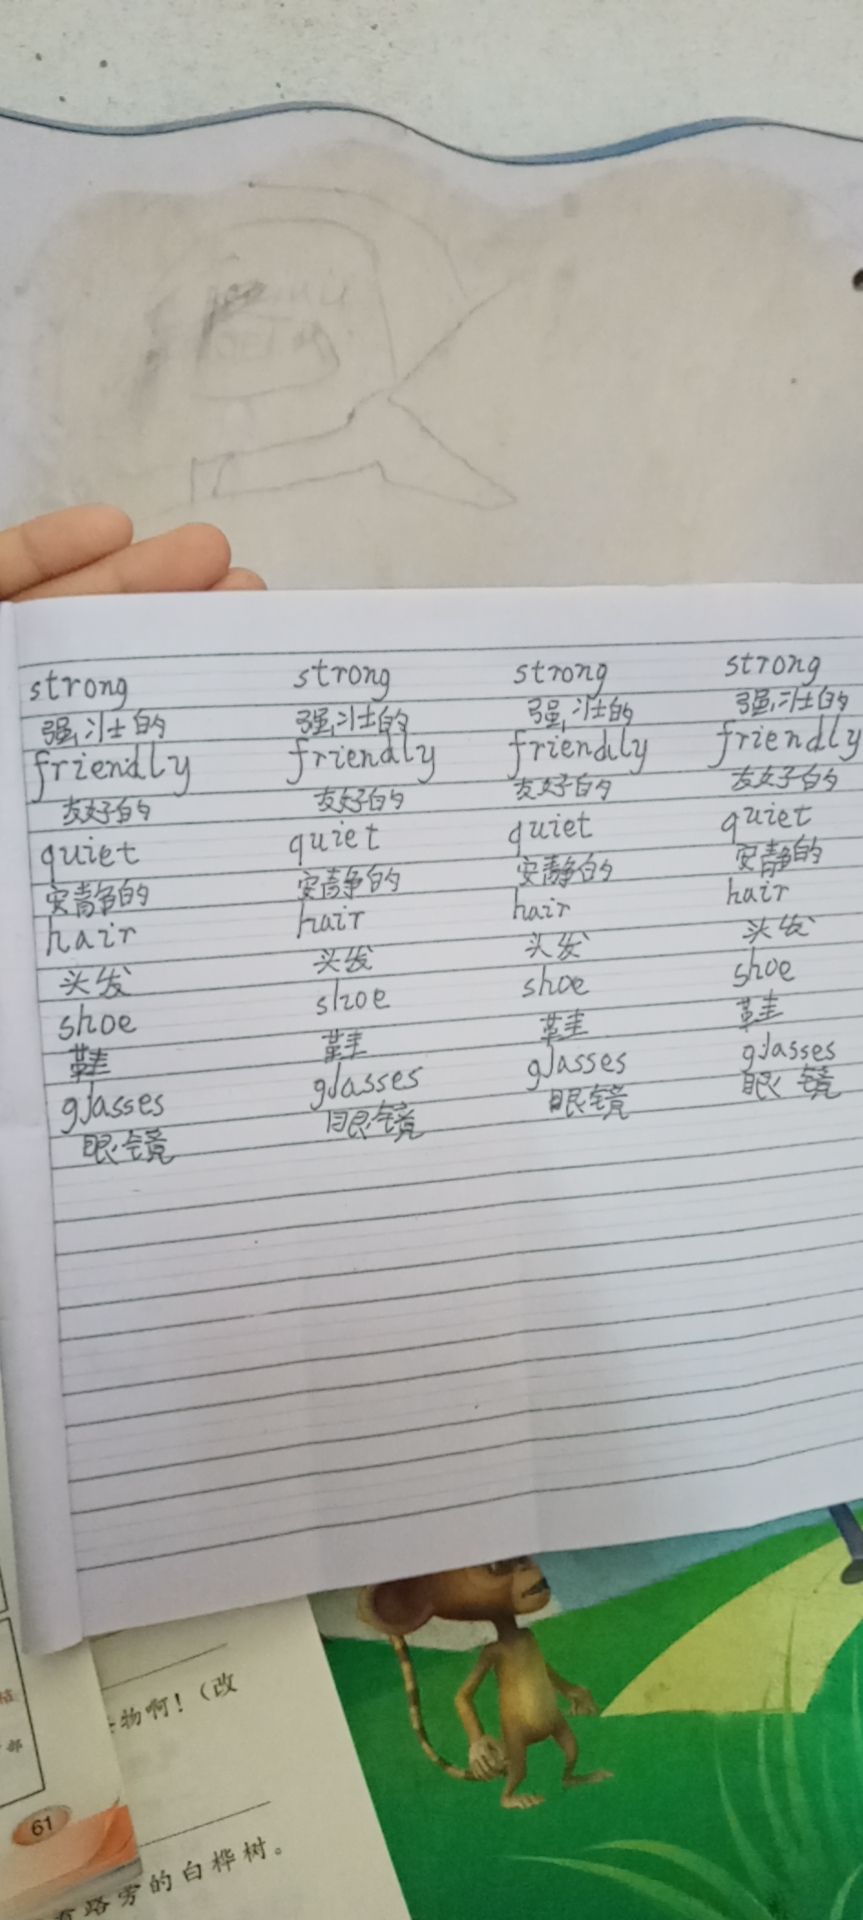 strong strong strong strong
强壮的 强壮的 强壮的 强壮的
friendly friendly friendly friendly
友好的 友好的 友好的 友好的
quiet quiet quiet quiet
安静的 安静的 安静的 安静的
hair hair hair hair
头发 头发 头发 头发
shoe shoe shoe shoe
鞋 鞋 鞋 鞋
glasses glasses glasses glasses
眼镜 眼镜 眼镜 眼镜
物啊！（改
部
61
路旁的白桦树。